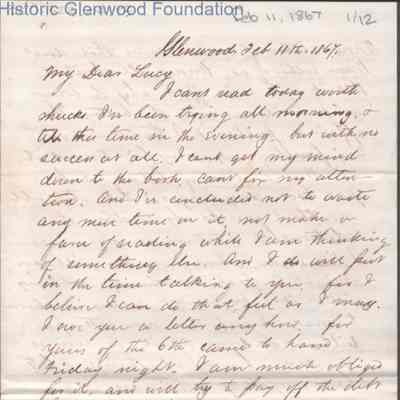 Historic Glenwood Foundation
Feb 11, 1867 1/12
Glenwood, Feb 11th, 1867.
My Dear Lucy
I cant read today worth
shucks I've been trying all morning, &
till this time in the evening, but with no
success at all, I cant get my mind
down to the book, cant fix my atten-
tion. And I've concluded not to waste
any more time on it, not make a
farce of reading while I am thinking
of something else. And I will put
in the time talking to you, for I
believe I can do that, feel as I may.
I owe you a letter anyhow, for
yours of the 6th came to hand
Friday night. I am much obliged
for it, and will try to pay off the debt